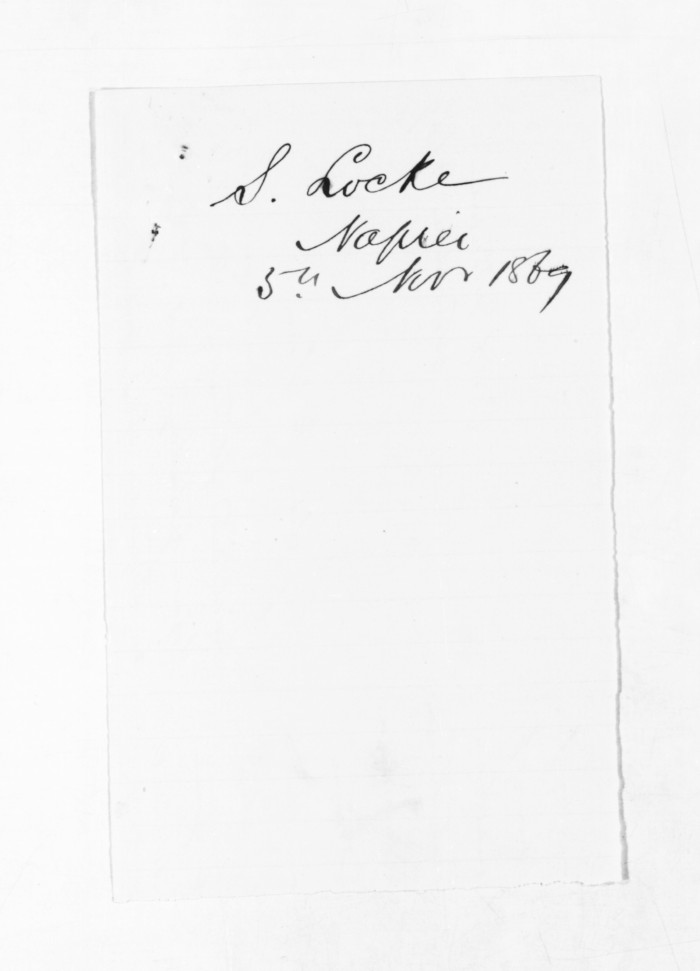 S. Locke
Napier
5th Novr 1869